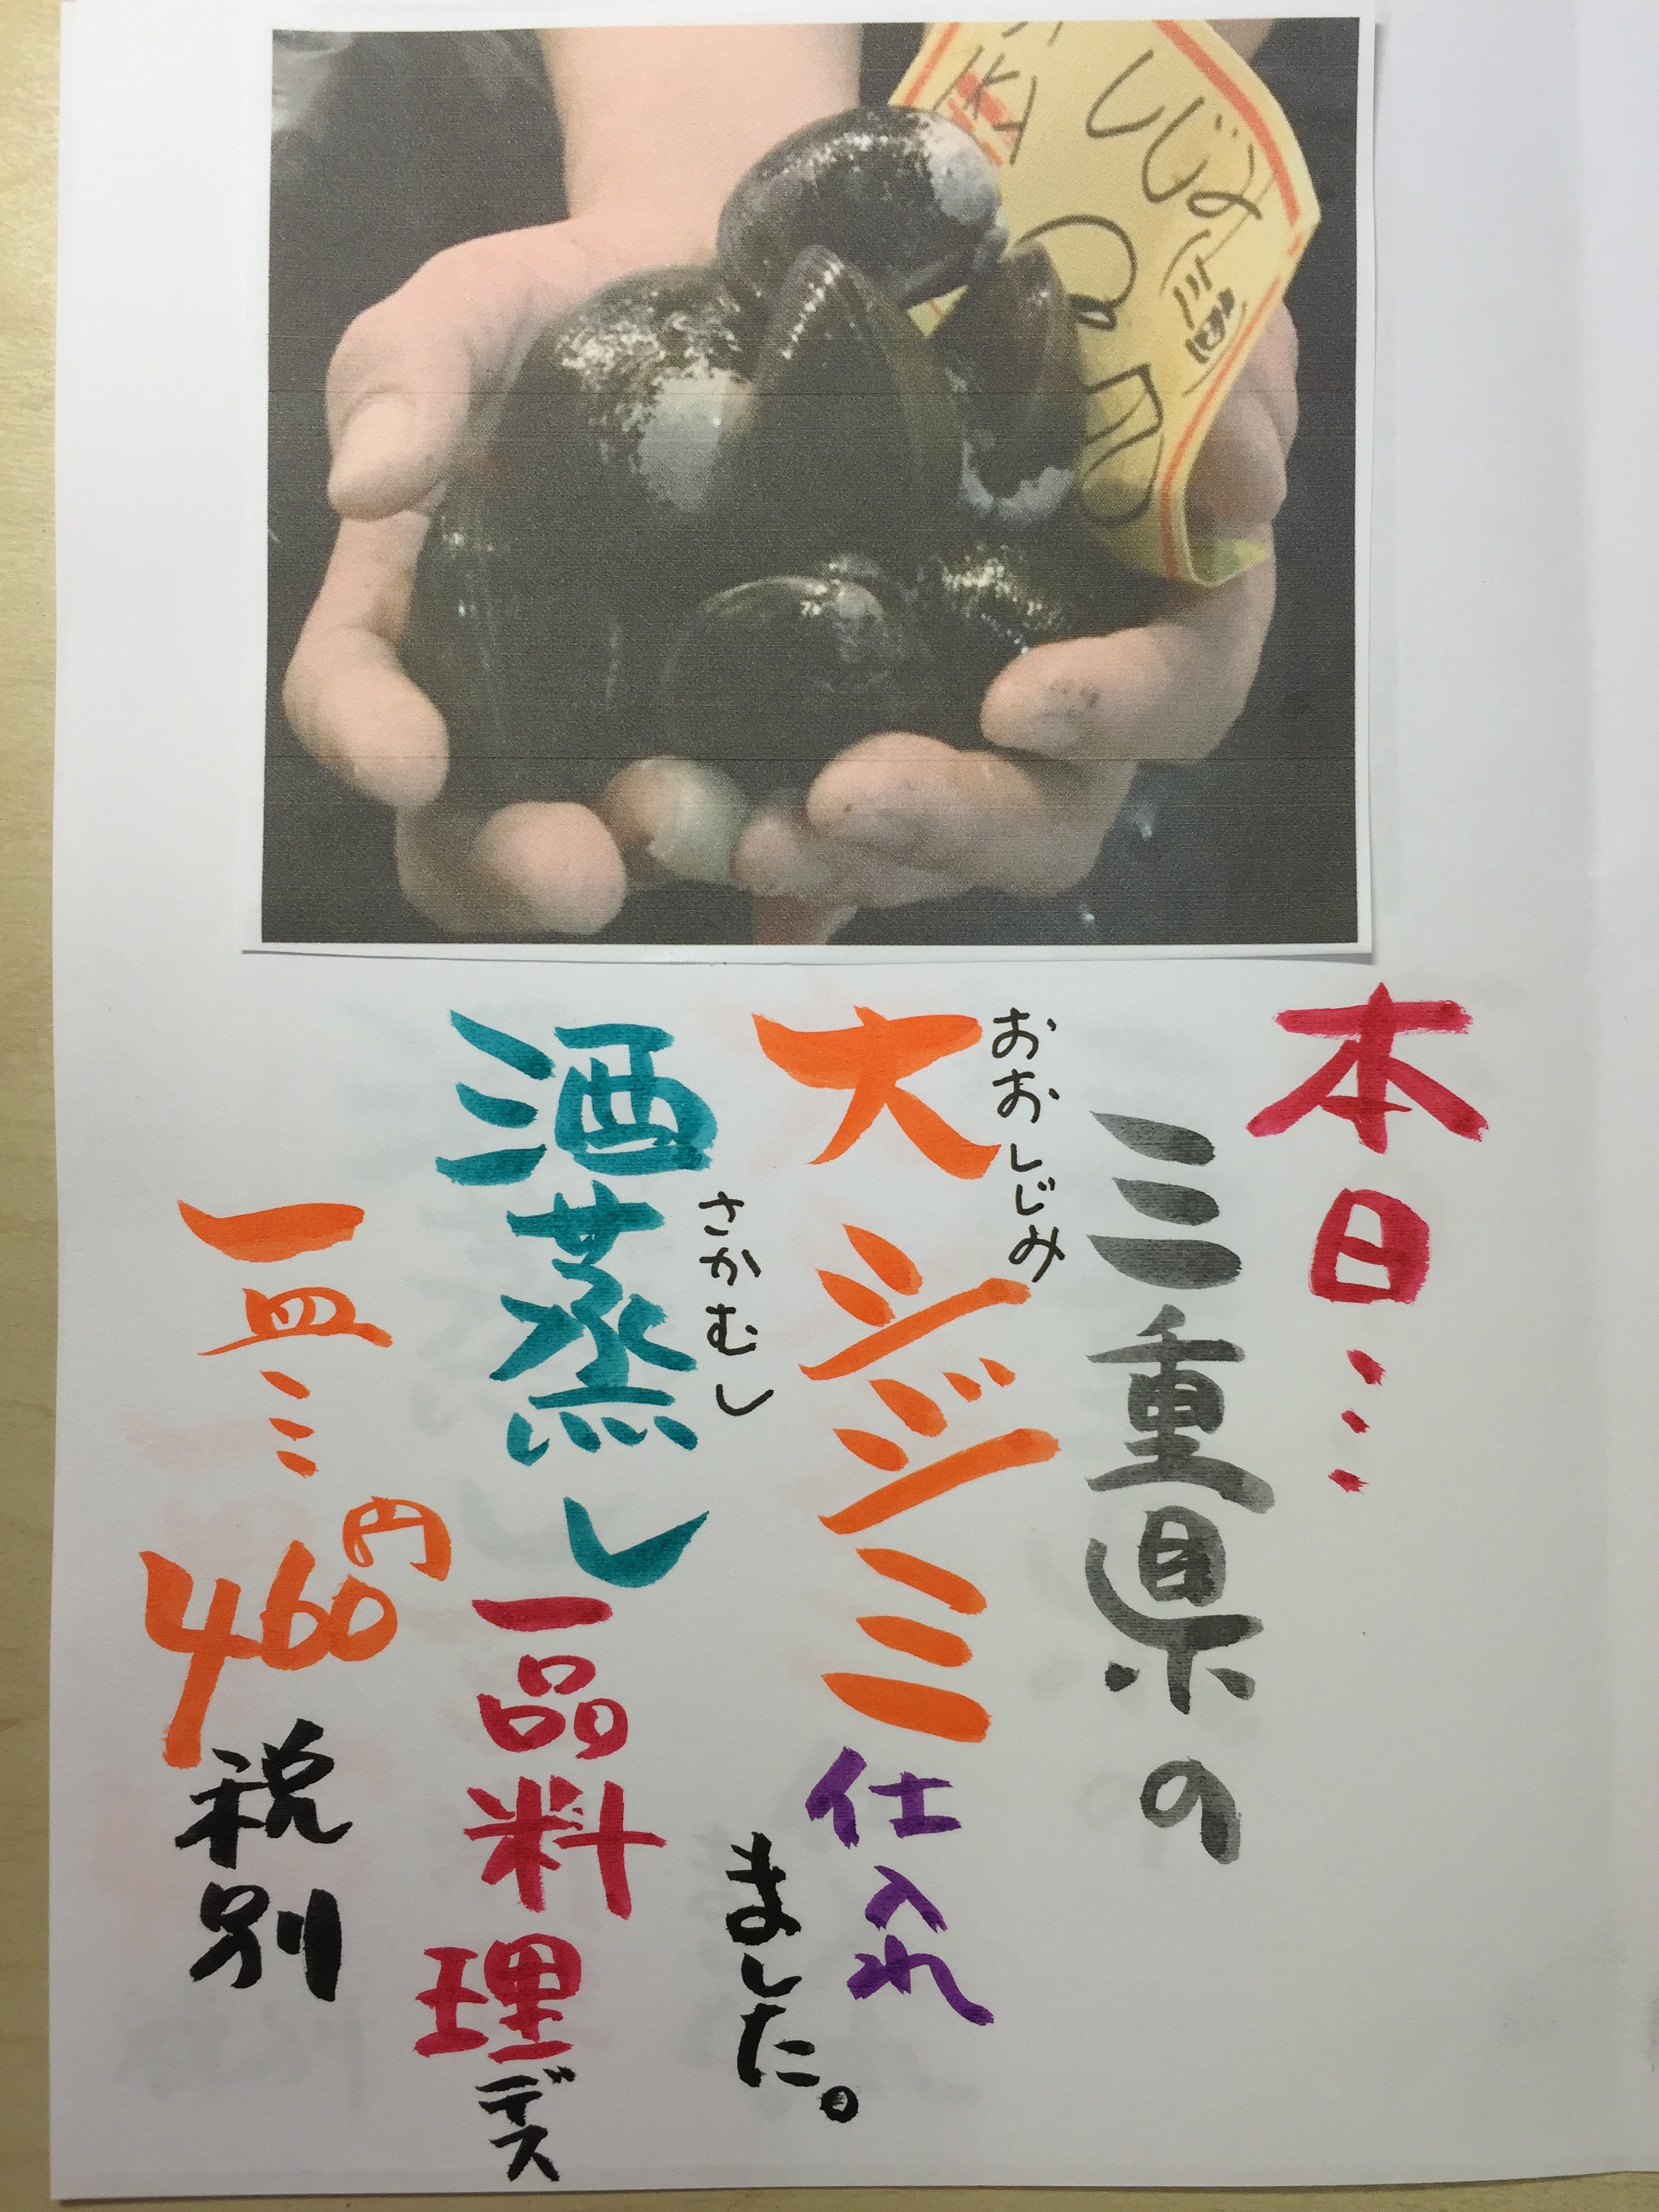 しじみ
本日…
三重県の
おおしじみ
大シジミ仕入れ
ました。
さかむし
酒蒸し一品料理デス
一皿ミ460円税別